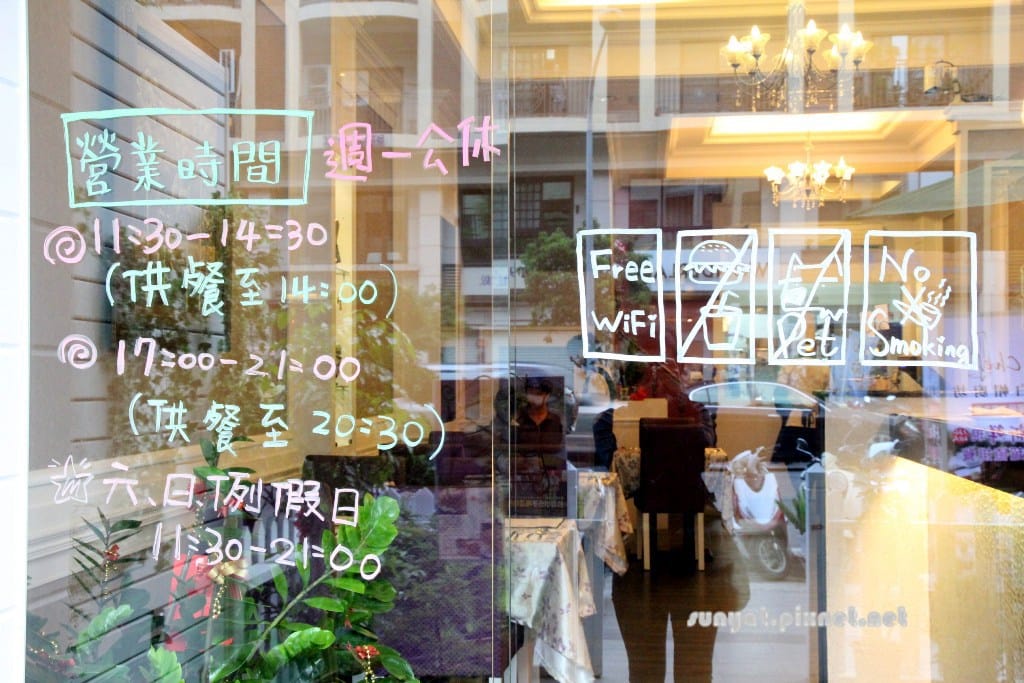 營業時間 週一公休
11:30-14:30
(供餐至14:00)
17:00-21:00
(供餐至20:30)
六、日例假日
11:30-21:00
Free
WiFi
Pet
No
Smoking
sunyat.pixnet.net